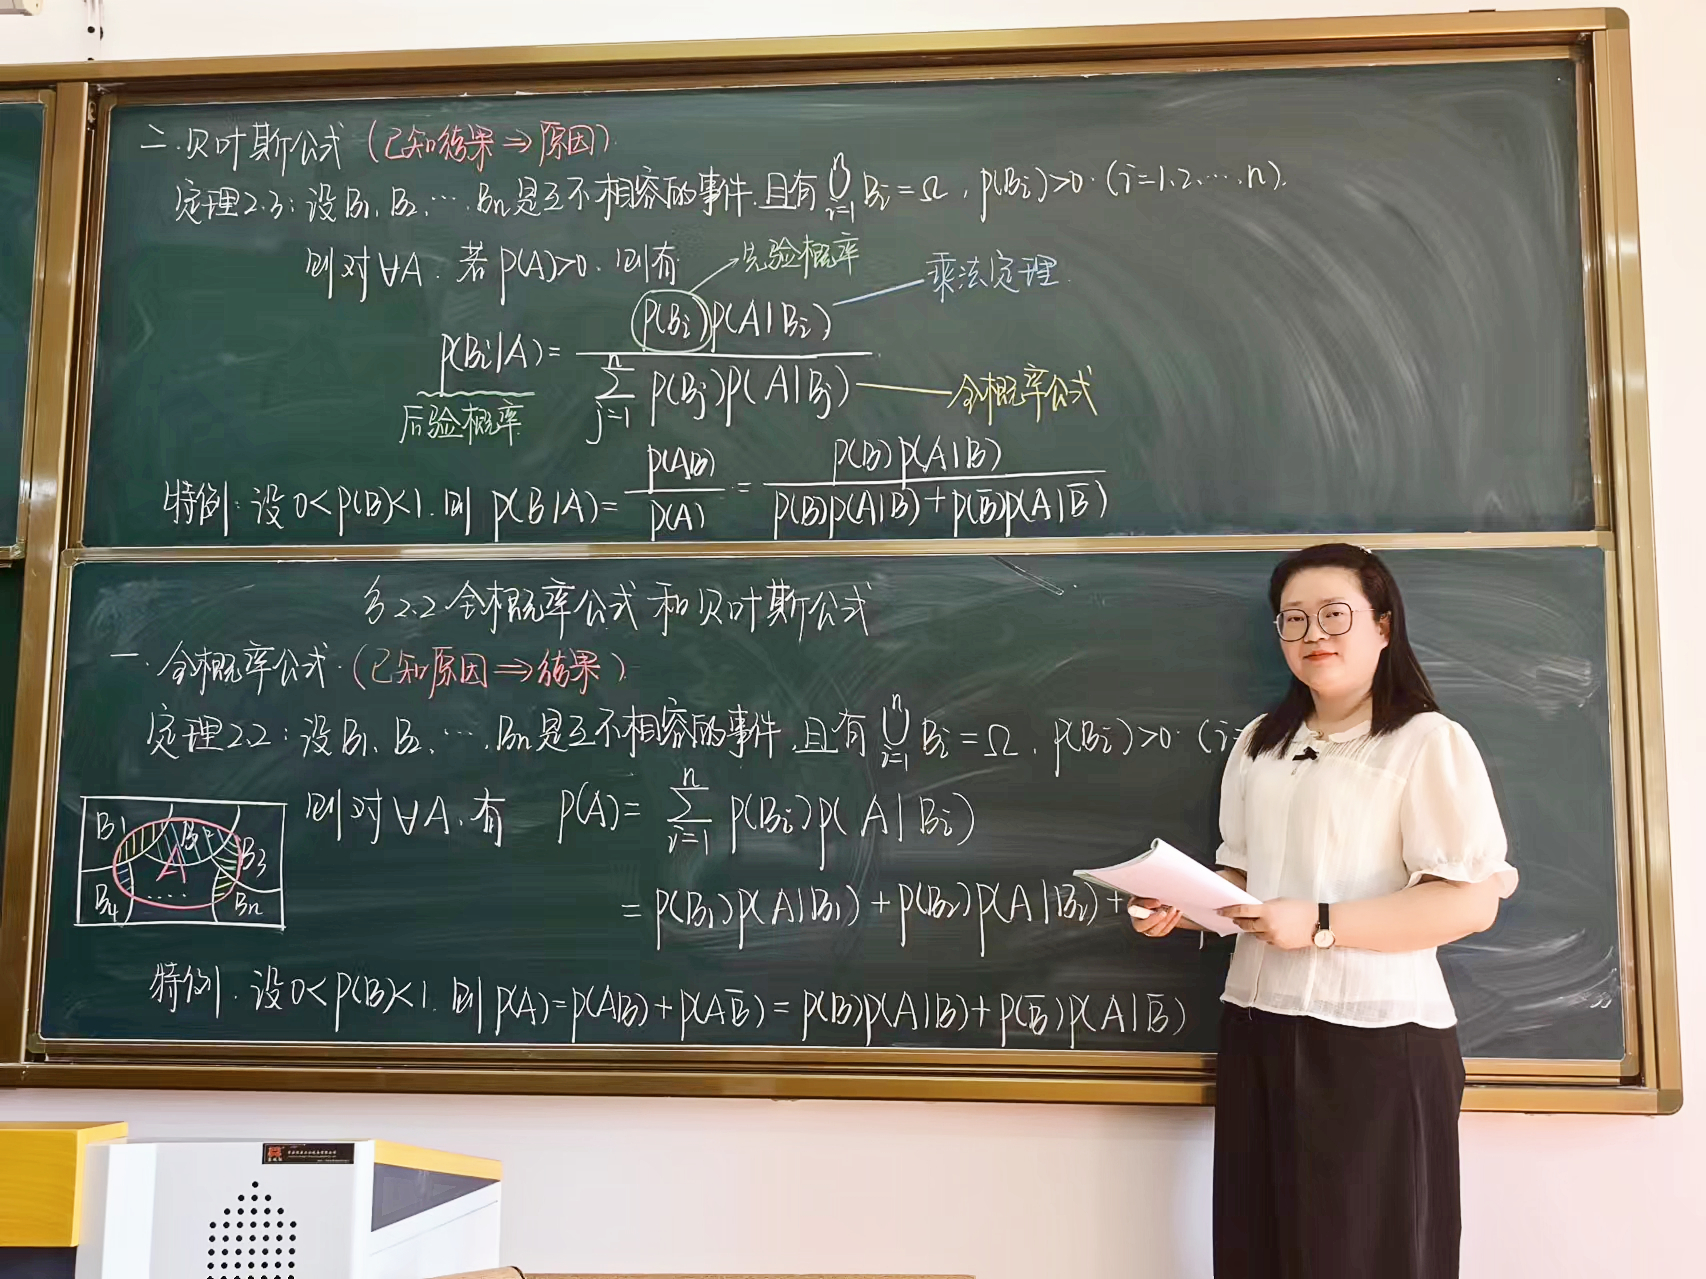 二.贝叶斯公式(已知结果⇒原因).
定理2.3:设B₁、B₂、…、Bn是互不相容的事件.且有 ⋃ᵢ₌₁ⁿ Bᵢ=Ω,p(Bᵢ)>0.(i=1.2.….n).
则对∀A.若p(A)>0.则有
先验概率
乘法定理.
p(Bᵢ|A)= p(Bᵢ)p(A|Bᵢ) / ∑ⱼ₌₁ⁿ p(Bⱼ)p(A|Bⱼ)
全概率公式
后验概率
特例:设0<p(B)<1.则 p(B|A)= p(AB)/p(A) = p(B)p(A|B) / p(B)p(A|B)+p(B̅)p(A|B̅)
§2.2全概率公式和贝叶斯公式
一.全概率公式.(已知原因⇒结果).
定理2.2:设B₁、B₂、…、Bn是互不相容的事件,且有 ⋃ᵢ₌₁ⁿ Bᵢ=Ω.p(Bᵢ)>0.(i=
则对∀A.有 p(A)= ∑ᵢ₌₁ⁿ p(Bᵢ)p(A|Bᵢ)
=p(B₁)p(A|B₁)+p(B₂)p(A|B₂)+
B₁ B₂ B₃
A
B₄ …. Bn
特例.设0<p(B)<1.则p(A)=p(AB)+p(AB̅)=p(B)p(A|B)+p(B̅)p(A|B̅)